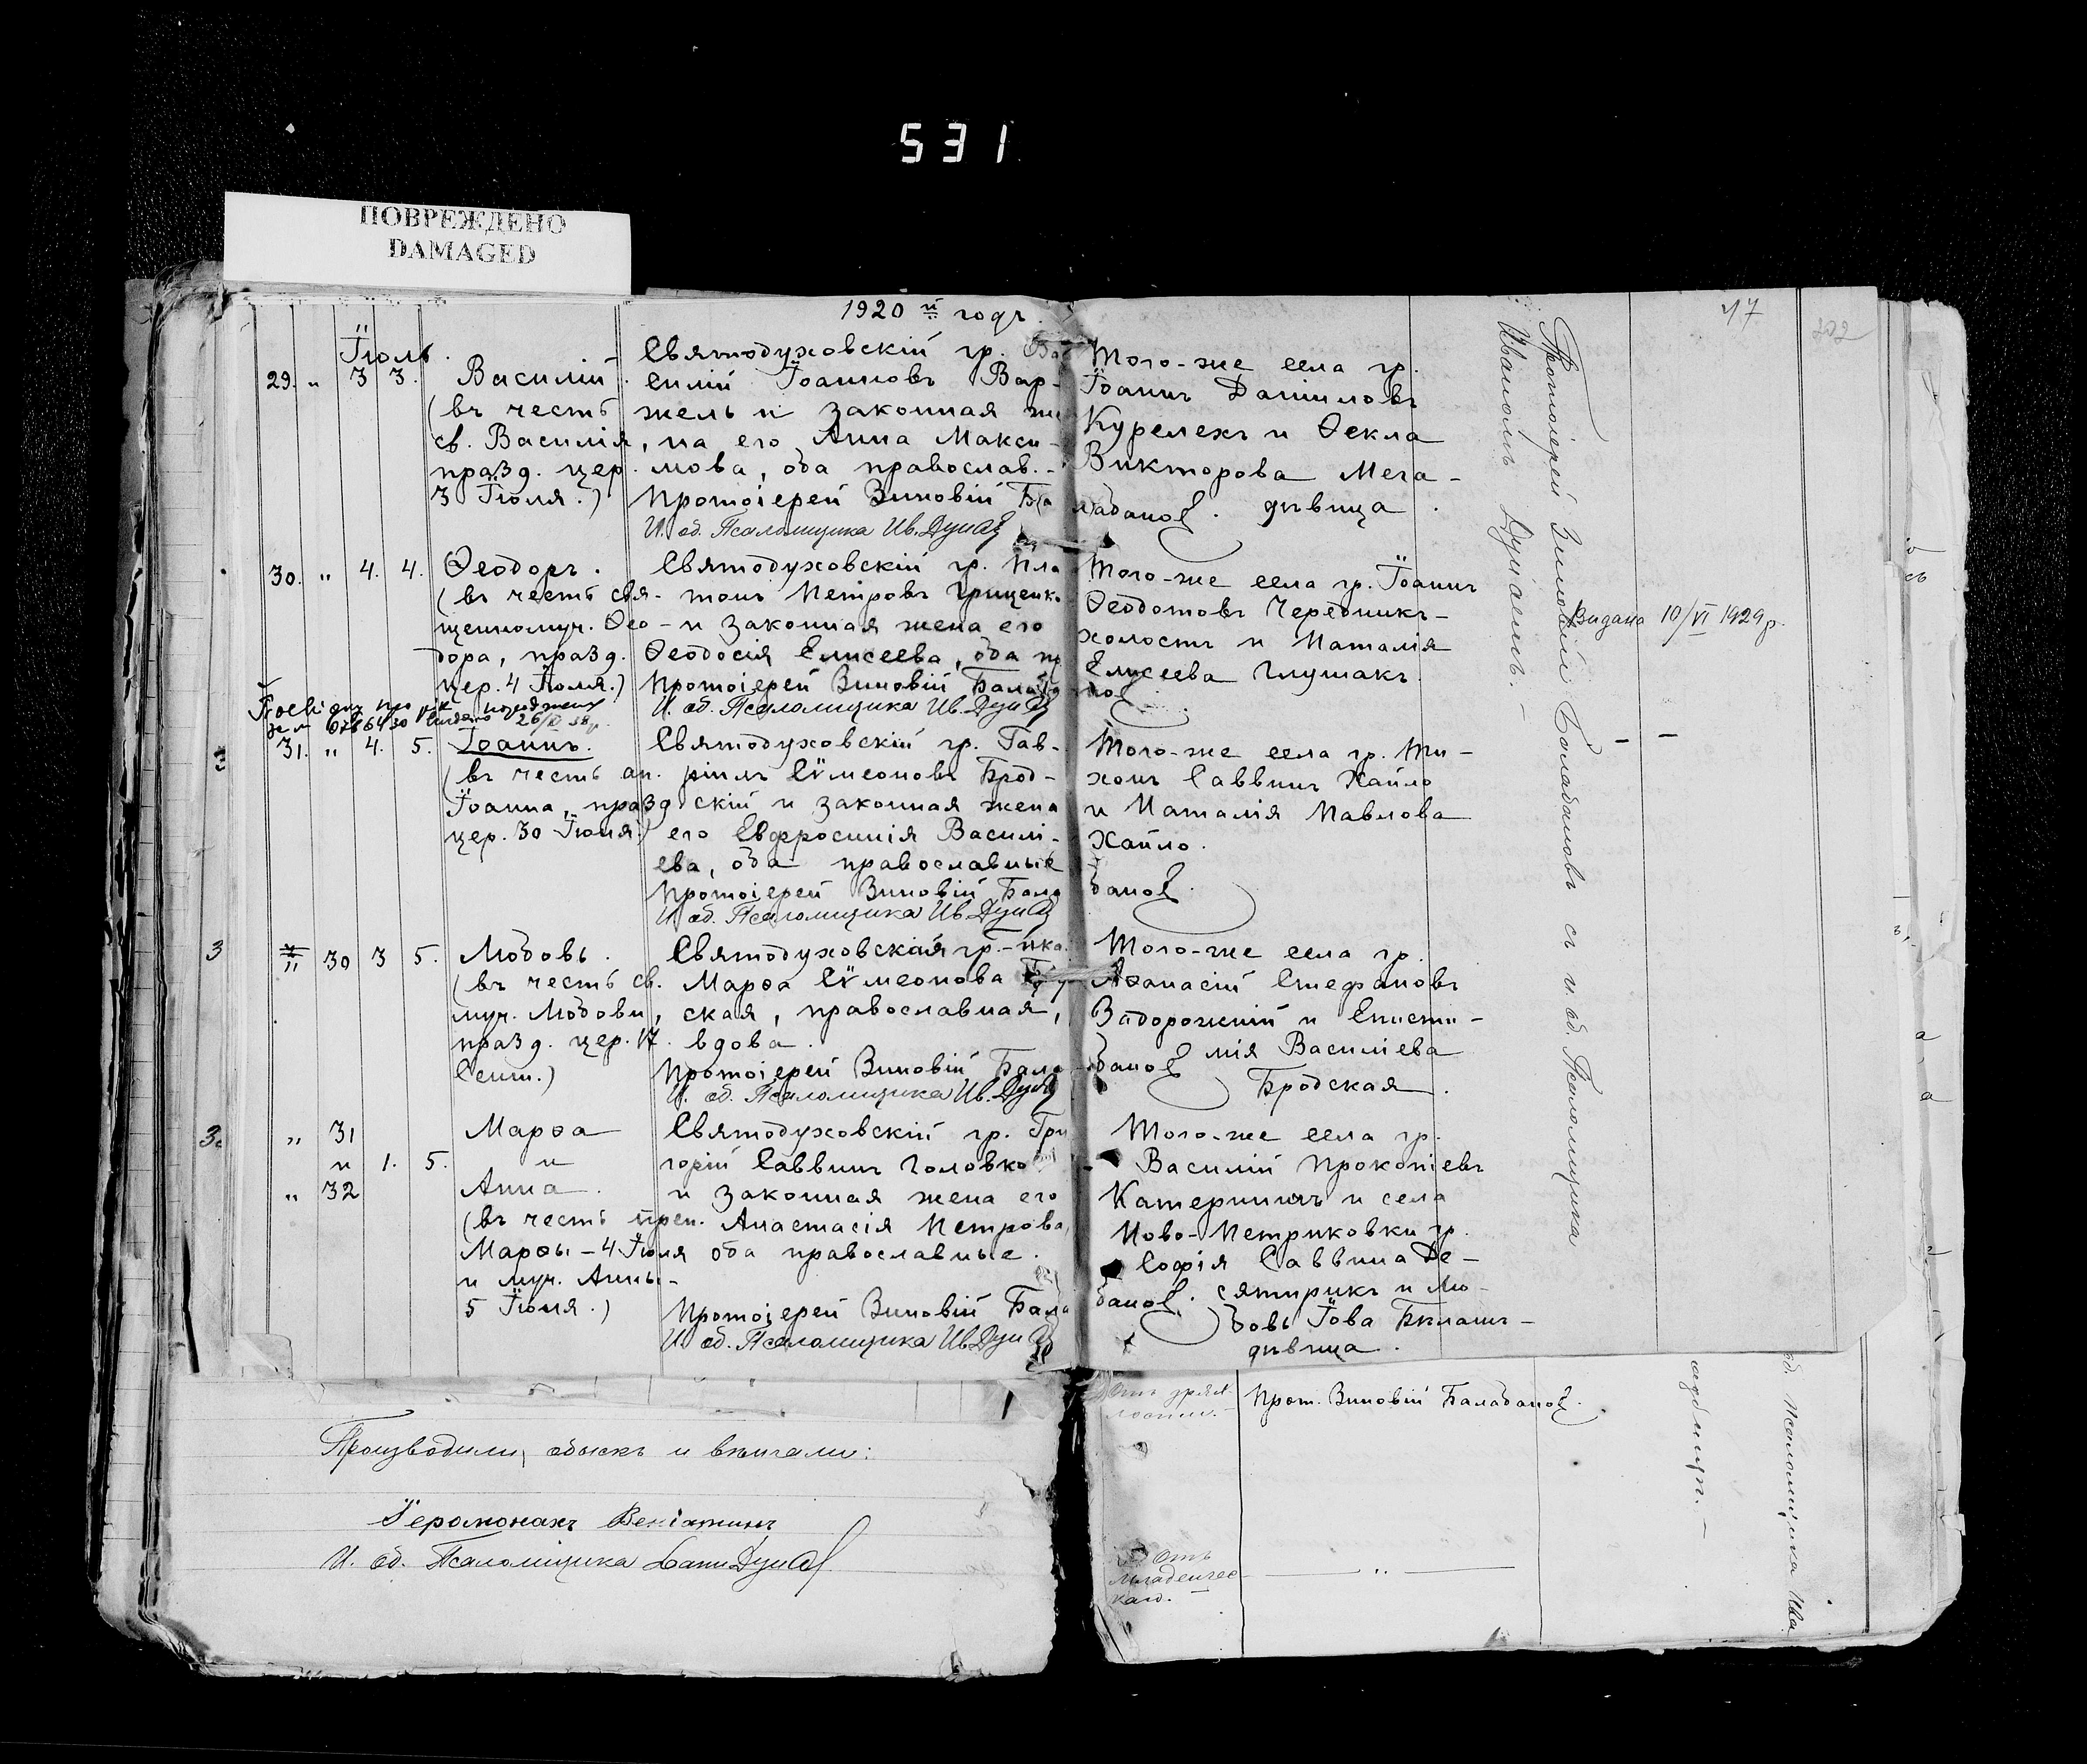 531
ПОВРЕЖДЕНО
DAMAGED
1920 й годъ.
17
202
Іюль.
29. " 3 3.
Василій.
(въ честь
св. Василія,
празд. цер.
3 Іюля.)
Святодуховскій гр. Ва
силій Іоанновъ Вар-
жель и законная же
на его Анна Макси-
мова, оба православ.-
Протоіерей Зиновій Бала
И. об. Псаломщика Ив. Дунаев
Того-же села гр.
Іоаннъ Даніиловъ
Курелехъ и Ѳекла
Викторова Мега-
дѣвица.
бановъ.
30. " 4. 4.
Ѳеодоръ.
(въ честь свя-
щенномуч. Ѳео-
дора, празд.
цер. 4 Іюля.)
Святодуховскій гр. Пла
тонъ Петровъ Гриценко
и законная жена его
Ѳеодосія Елисеева, оба пр
Протоіерей Зиновій Балаба
И. об. Псаломщика Ив. Дунаев
Того-же села гр. Іоаннъ
Ѳеодотовъ Чередникъ-
холостъ и Наталія
Елисеева Глушакъ.
новъ.
Видана 10/VI 1929 р.
31. " 4. 5.
Іоаннъ.
(въ честь ап.
Іоанна, празд
цер. 30 Іюня.)
Святодуховскій гр. Гав-
ріилъ Сѵмеоновъ Брод-
скій и законная жена
его Евфросинія Василі-
ева, оба православные
Протоіерей Зиновій Бала
И. об. Псаломщика Ив. Дунаев
Того-же села гр. Ти-
хонъ Саввинъ Хайло
и Наталія Павлова
Хайло.
бановъ.
3
" 30 3 5.
Любовь.
(въ честь св.
муч. Любови,
празд. цер. 17
Сент.)
Святодуховская гр.-нка
Марѳа Сѵмеонова
ская, православная,
вдова.
Протоіерей Зиновій Бала
И. об. Псаломщика Ив. Дунаев
Того-же села гр.
Аѳанасій Стефановъ
Задорожній и Еписти-
мія Василіева
Бродская.
бановъ
3.
" 31
и 1. 5.
" 32
Марѳа
и
Анна.
(въ честь преп.
Марѳы - 4 Іюля
и муч. Анны-
5 Іюля.)
Святодуховскій гр. Гри
горій Саввинъ Головко
и законная жена его
Анастасія Петрова,
оба православные.
Протоіерей Зиновій Бала
И. об. Псаломщика Ив. Дунаев
Того-же села гр.
Василій Прокопіевъ
Катерничъ и села
Ново-Петриковки гр.
Софія Саввина Де-
сятирикъ и Лю-
бовь Іова Бѣланъ-
дѣвица.
бановъ.
Протоіерей Зиновій Балабановъ съ и. об. Псаломщика
Иваномъ Дунаевъ.-
Производили обыскъ и вѣнчали:
Іеромонахъ Веніаминъ
И. об. Псаломщика
Прот. Зиновій Балабановъ.
Отъ
младенчес-
каго.
об. Псаломщика Ива